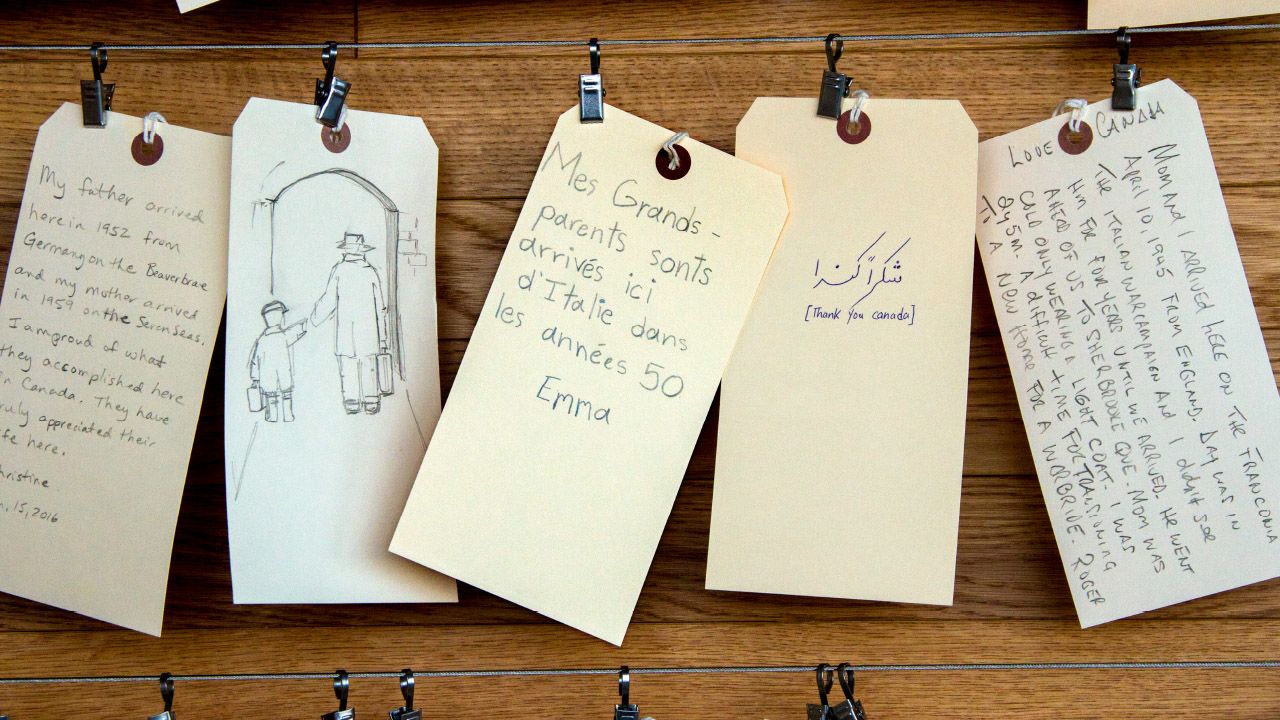 My father arrived
here in 1952 from
Germany on the Beaverbrae
and my mother arrived
in 1959 on the Seven Seas.
I am proud of what
they accomplished here
in Canada. They have
ruly appreciated their
ife here.
hristine
n. 15, 2016
Mes Grands-
parents sonts
arrivés ici
d'Italie dans
les années 50
Emma
شكراً كندا
[Thank you canada]
LOVE CANADA
MOM AND I ARRIVED HERE ON THE FRANCONIA
APRIL 10, 1945 FROM ENGLAND. DAY WAS IN
THE ITALIAN WAR CAMPAIGN AND I DIDN'T SEE
HIM FOR FOR YEARS UNTIL WE ARRIVED. HE WENT
AHEAD OF US TO SHERBROOKE QUE. MOM WAS
COLD ONLY WEARING A LIGHT COAT. I WAS
2y 5m. A DIFFICULT TIME FOR TRANSITIONING
TO A NEW HOME FOR A WARBRIDE. ROGER